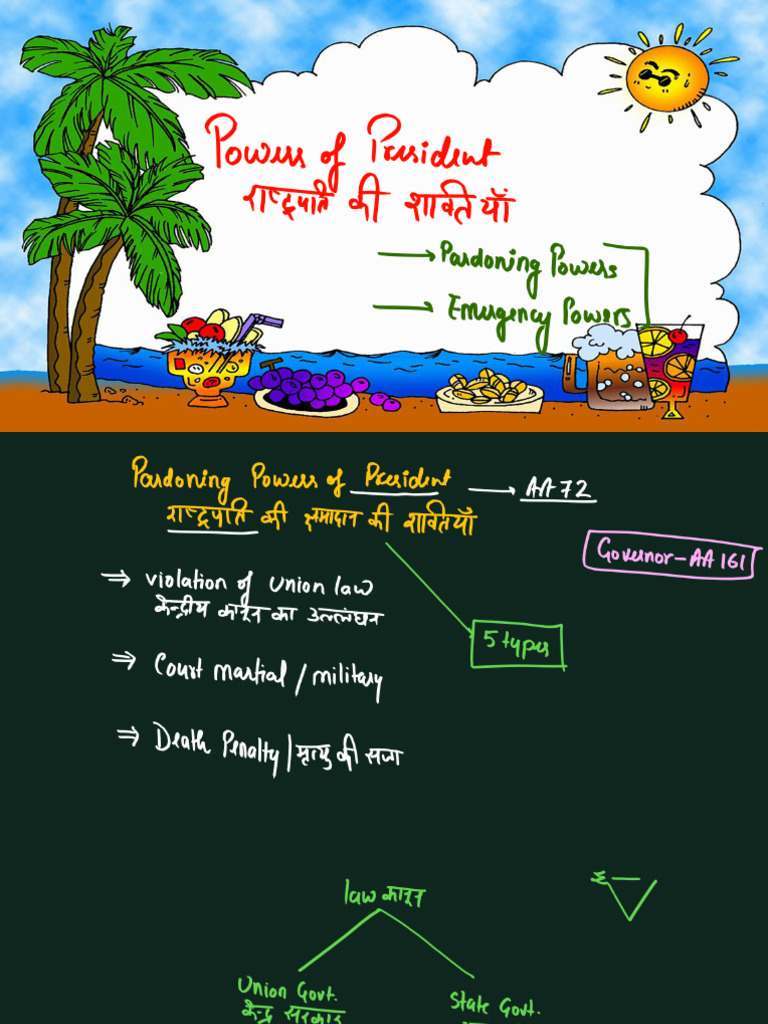 Powers of President
राष्ट्रपति की शक्तियाँ
→ Pardoning Powers
→ Emergency Powers
Pardoning Powers of President → AA 72
राष्ट्रपति की क्षमादान की शक्तियाँ
Governor - AA 161
⇒ violation of Union law
केन्द्रीय कानून का उल्लंघन
5 types
⇒ Court Martial / military
⇒ Death Penalty | मृत्यु की सजा
law कानून
Union Govt.
केन्द्र सरकार
State Govt.